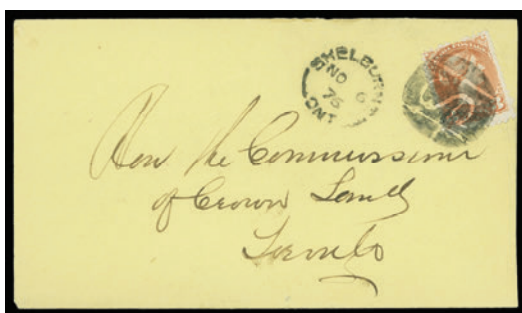 SHELBURNE
NO 6
76
ONT
Hon the Commissioner
of Crown Lands
Toronto